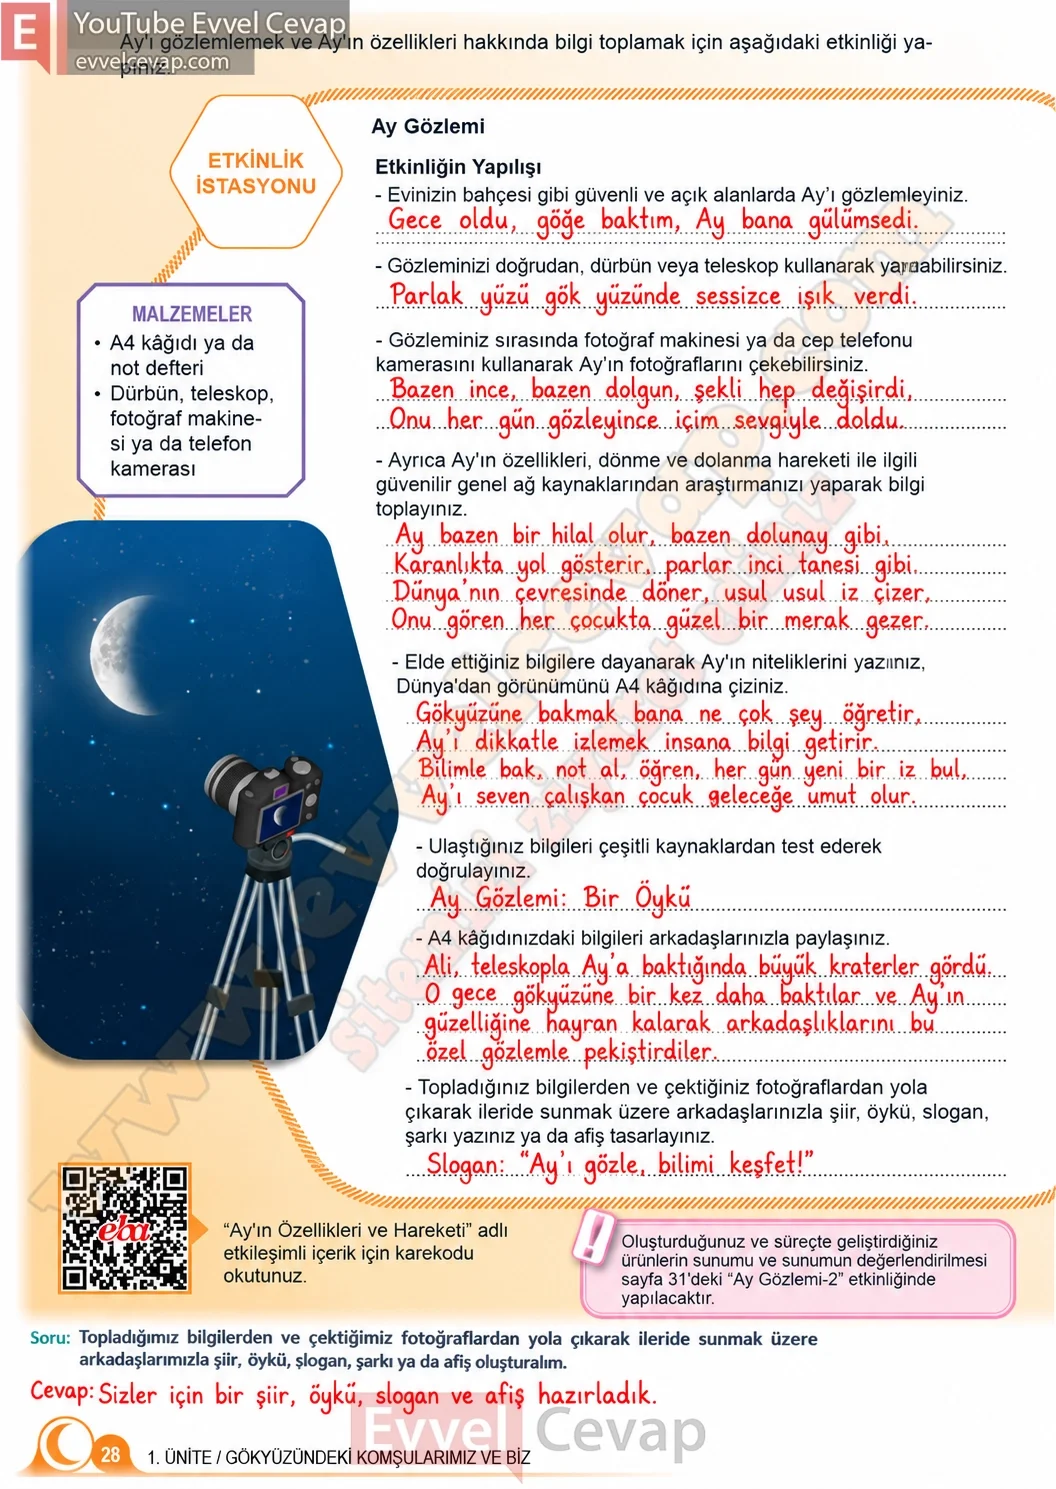 YouTube Evvel Cevap
evvelcevap.com
Ay'ı gözlemlemek ve Ay'ın özellikleri hakkında bilgi toplamak için aşağıdaki etkinliği ya-
pınız.
ETKİNLİK
İSTASYONU
MALZEMELER
• A4 kâğıdı ya da
not defteri
• Dürbün, teleskop,
fotoğraf makine-
si ya da telefon
kamerası
Ay Gözlemi
Etkinliğin Yapılışı
- Evinizin bahçesi gibi güvenli ve açık alanlarda Ay'ı gözlemleyiniz.
Gece oldu, göğe baktım, Ay bana gülümsedi.
- Gözleminizi doğrudan, dürbün veya teleskop kullanarak yapabilirsiniz.
Parlak yüzü gök yüzünde sessizce ışık verdi.
- Gözleminiz sırasında fotoğraf makinesi ya da cep telefonu
kamerasını kullanarak Ay'ın fotoğraflarını çekebilirsiniz.
Bazen ince, bazen dolgun, şekli hep değişirdi,
Onu her gün gözleyince içim sevgiyle doldu.
- Ayrıca Ay'ın özellikleri, dönme ve dolanma hareketi ile ilgili
güvenilir genel ağ kaynaklarından araştırmanızı yaparak bilgi
toplayınız.
Ay bazen bir hilal olur, bazen dolunay gibi,
Karanlıkta yol gösterir, parlar inci tanesi gibi.
Dünya'nın çevresinde döner, usul usul iz çizer,
Onu gören her çocukta güzel bir merak gezer.
- Elde ettiğiniz bilgilere dayanarak Ay'ın niteliklerini yazınız,
Dünya'dan görünümünü A4 kâğıdına çiziniz.
Gökyüzüne bakmak bana ne çok şey öğretir,
Ay'ı dikkatle izlemek insana bilgi getirir.
Bilimle bak, not al, öğren, her gün yeni bir iz bul,
Ay'ı seven çalışkan çocuk geleceğe umut olur.
- Ulaştığınız bilgileri çeşitli kaynaklardan test ederek
doğrulayınız.
Ay Gözlemi: Bir Öykü
- A4 kâğıdınızdaki bilgileri arkadaşlarınızla paylaşınız.
Ali, teleskopla Ay'a baktığında büyük kraterler gördü.
O gece gökyüzüne bir kez daha baktılar ve Ay'ın
güzelliğine hayran kalarak arkadaşlıklarını bu
özel gözlemle pekiştirdiler.
- Topladığınız bilgilerden ve çektiğiniz fotoğraflardan yola
çıkarak ileride sunmak üzere arkadaşlarınızla şiir, öykü, slogan,
şarkı yazınız ya da afiş tasarlayınız.
Slogan: "Ay'ı gözle, bilimi keşfet!"
eba
"Ay'ın Özellikleri ve Hareketi" adlı
etkileşimli içerik için karekodu
okutunuz.
Oluşturduğunuz ve süreçte geliştirdiğiniz
ürünlerin sunumu ve sunumun değerlendirilmesi
sayfa 31'deki "Ay Gözlemi-2" etkinliğinde
yapılacaktır.
Soru: Topladığımız bilgilerden ve çektiğimiz fotoğraflardan yola çıkarak ileride sunmak üzere
arkadaşlarımızla şiir, öykü, şlogan, şarkı ya da afiş oluşturalım.
Cevap: Sizler için bir şiir, öykü, slogan ve afiş hazırladık.
Evvel Cevap
28
1. ÜNİTE / GÖKYÜZÜNDEKİ KOMŞULARIMIZ VE BİZ
www.evvelcevap.com
sitemizi ziyaret ediniz